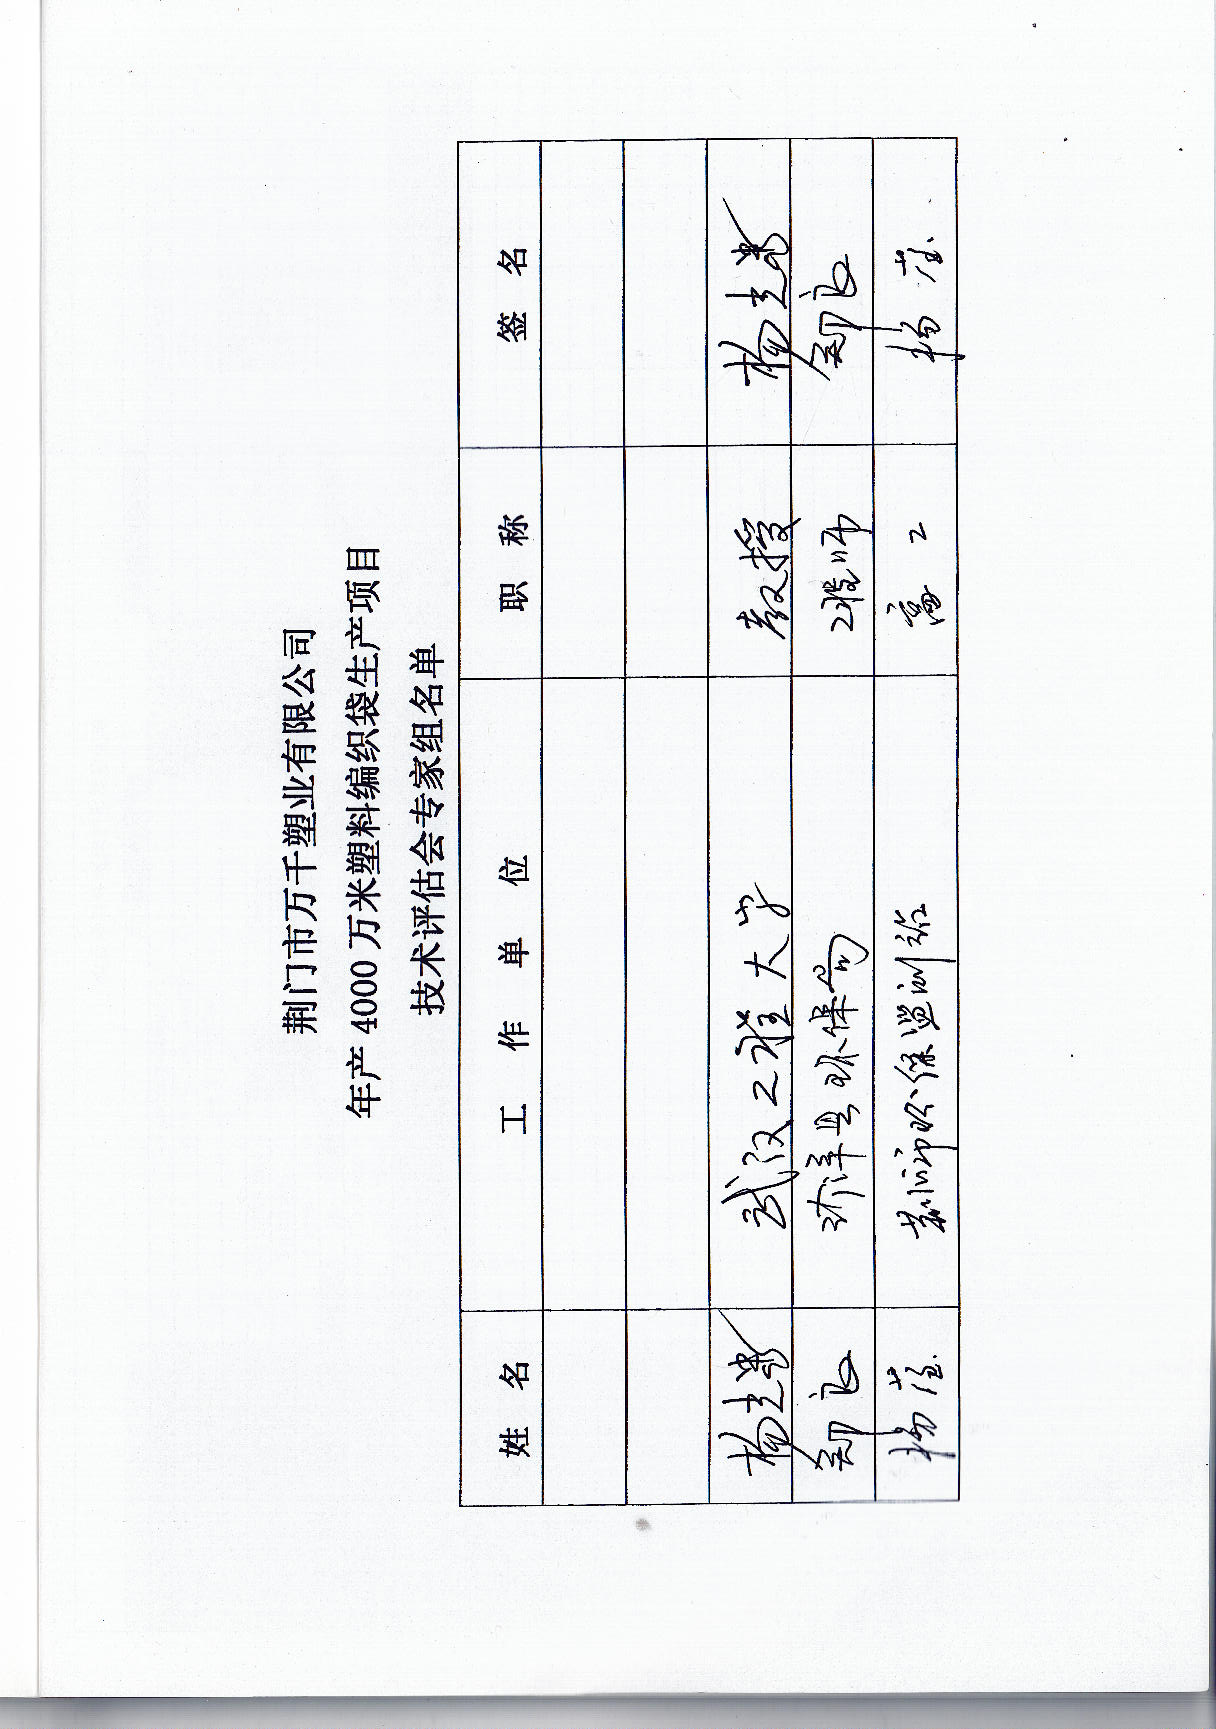 荆门市万千塑业有限公司
年产 4000 万米塑料编织袋生产项目
技术评估会专家组名单
姓 名 工 作 单 位 职 称 签 名
武汉工程大学 教授
沙洋县环保局 工程师
杨 荆门市环保监测站 高工 杨